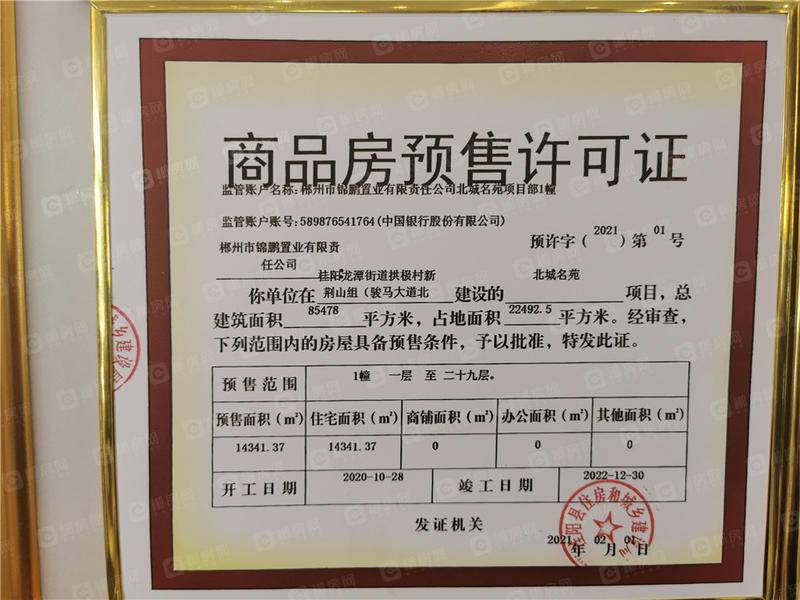 商品房预售许可证
监管账户名称:郴州市锦鹏置业有限责任公司北城名苑项目部1幢
监管账户账号:589876541764(中国银行股份有限公司)
郴州市锦鹏置业有限责
任公司
预许字(2021)第 01 号
桂阳龙潭街道拱极村新
北城名苑
你单位在 荆山组(骏马大道北 建设的 项目,总
建筑面积 85478 平方米,占地面积 22492.5 平方米。经审查,
下列范围内的房屋具备预售条件,予以批准,特发此证。
预售范围 1幢 一层 至 二十九层。
预售面积(㎡) 住宅面积(㎡) 商铺面积(㎡) 办公面积(㎡) 其他面积(㎡)
14341.37 14341.37 0 0 0
开工日期 2020-10-28 竣工日期 2022-12-30
发证机关
2021年 02月 01日
桂阳县住房和城乡建
乡建设
郴房网